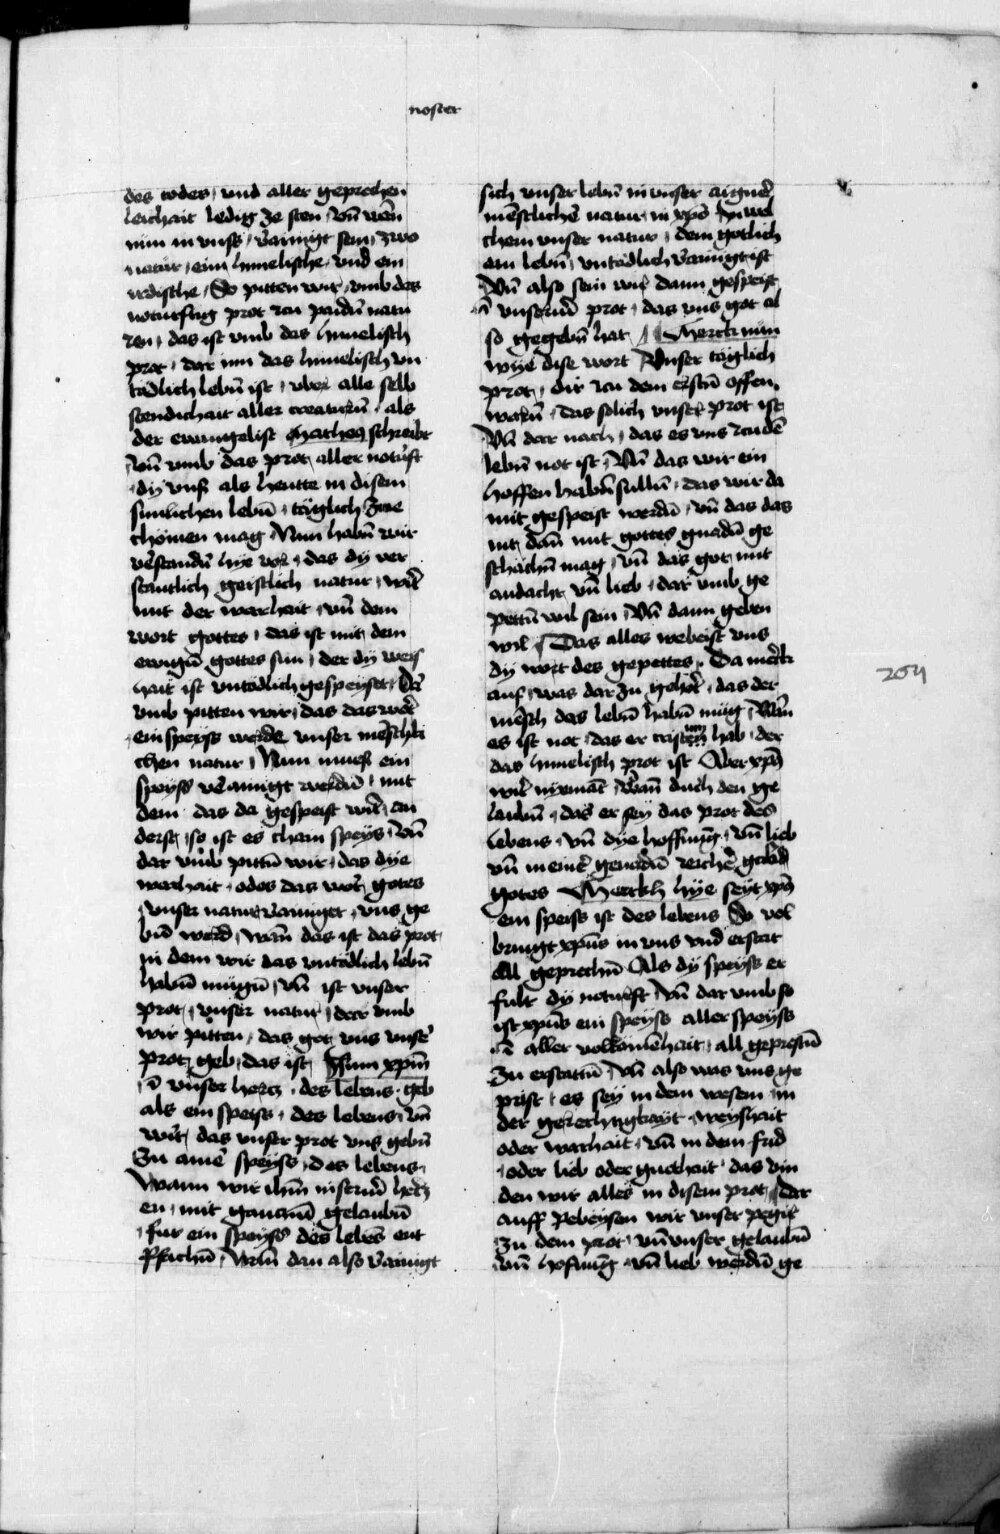 noster
des todes / vnd aller geprechen
leichait ledig ze sten / vn̄ wen̄
nun in vnss / verainigt sein / zwo
natur / eini himelische / vnd ein
irdische / So pitten wir / vmb das
noturftig prot zcu paidn̄ natu
ren / das ist vmb das himelisch
prot / dar inn das himelisch vn
tödlich lebn̄ ist / vber alle selb
stendichait aller creaturn̄ / als
der ewangelist Matheus schreibt
vn̄ vmb das prot / aller noturft
dy vnss als hewtte in disem
sinnlichen lebn̄ / täglich zue
chömen mag / Nun habn̄ wir
v̄standn̄ hye vor / das dy ver
stantlich geistlich natur / wirt̄
mit der warhait / vn̄ dem
wort gottes / das ist mit dem
ewign̄ gottes sun / der dy weis
hait ist vntödlich gespeyset / Dar̄
vmb pitten wir / das das wort̄
ein speyss werde vnser menschli
chen natur / Nun muess ein
speyss v̄ainigt werdn̄ / mit
dem das da gespeist wirt̄ / an
derst / so ist es cham speys / vn̄
dar vmb pittn̄ wir / das dye
warhait / oder das wort̄ gotes
vnser natur v̄ainiget / vns ge
bn̄ werd / wan̄ das ist das prot
in dem wir das vntödlich lebn̄
habn̄ mügn̄ / vn̄ ist vnser
prot / vnser natur / dar vmb
wir pitten / das got vns vnser̄
prot geb / das ist / Jhesum xp̄m
in̄ vnser hertz / des lebens / geb
als ein speiss / des lebens / vn̄
wirt̄ das vnser prot vns gebn̄
Zu ainer̄ speyss / des lebens
Wann wir ihn̄ in vnsern̄ hertz
en / mit gantzm̄ gelaubn̄
fur ein speyss des lebens̄ ent
pfachn̄ / Wirt̄ dan also v̄ainigt
sich vnser lebn̄ in vnser aigner̄
menschlicher̄ natur / in xp̄o / In wel
chem vnser natur / dem götlich
em lebn̄ / vntödlich v̄ainigt ist
Vn̄ also sein wir dann gespeist
in̄ vnserm̄ prot / das vns got al
so gegebn̄ hat / Merck nun
wye dise wort Vnser täglich
prot / dir zcu dem erstn̄ offen
warn̄ / das solich vnser prot ist
Vn̄ dar nach / das es vns zcu dem̄
lebn̄ not ist / Vn̄ das wir ein
hoffen habn̄ sulln̄ / das wir da
mit gespeist werdn̄ / vn̄ das das
nit / dan̄ mit gottes gnadn̄ ge
schächn̄ mag / vn̄ das got mit
andacht vn̄ lieb / dar vmb ge
pettn̄ wil sein / Vn̄ dann geben
wil / Das alles webeist vns
dy wort des gepettes / Da merck
auf / was dar zu gehort̄ / das der
mensch das lebn̄ habn̄ müg / Wan̄
es ist not / das er cristum hab / der
das himelisch prot ist Aber xp̄m
wirt̄ nyemant̄ / wan̄ durch den ge
laubn̄ / das er sey das prot des
lebens / vn̄ dye hoffnunḡ / vn̄ lieb
vn̄ in ainer̄ genadn̄ reicher̄ gab
gotes Merckh hye seyt xp̄s
ein speiss ist des lebens So vol
bringt xp̄us in vns vnd erstat
all geprechn̄ Als dy speyss er
fult dy noturft / Vn̄ dar vmb so
ist xp̄us ein speyss aller speyss
in̄ aller volkomenhait̄ / all geprestn̄
Zu erstattn̄ / Vn̄ also was vns ge
prist / es sey in dem wesem / in
der gerechtigkayt / weyshait
oder warhait / vn̄ in dem frid
oder lieb oder guethait / das vin
den wir alles in disem prot / Dar
auff pebeysen wir vnser pegir
Zu dem prot / vn̄ vnser gelaubn̄
vn̄ hofnunḡ / vn̄ lieb werdn̄ ge
204